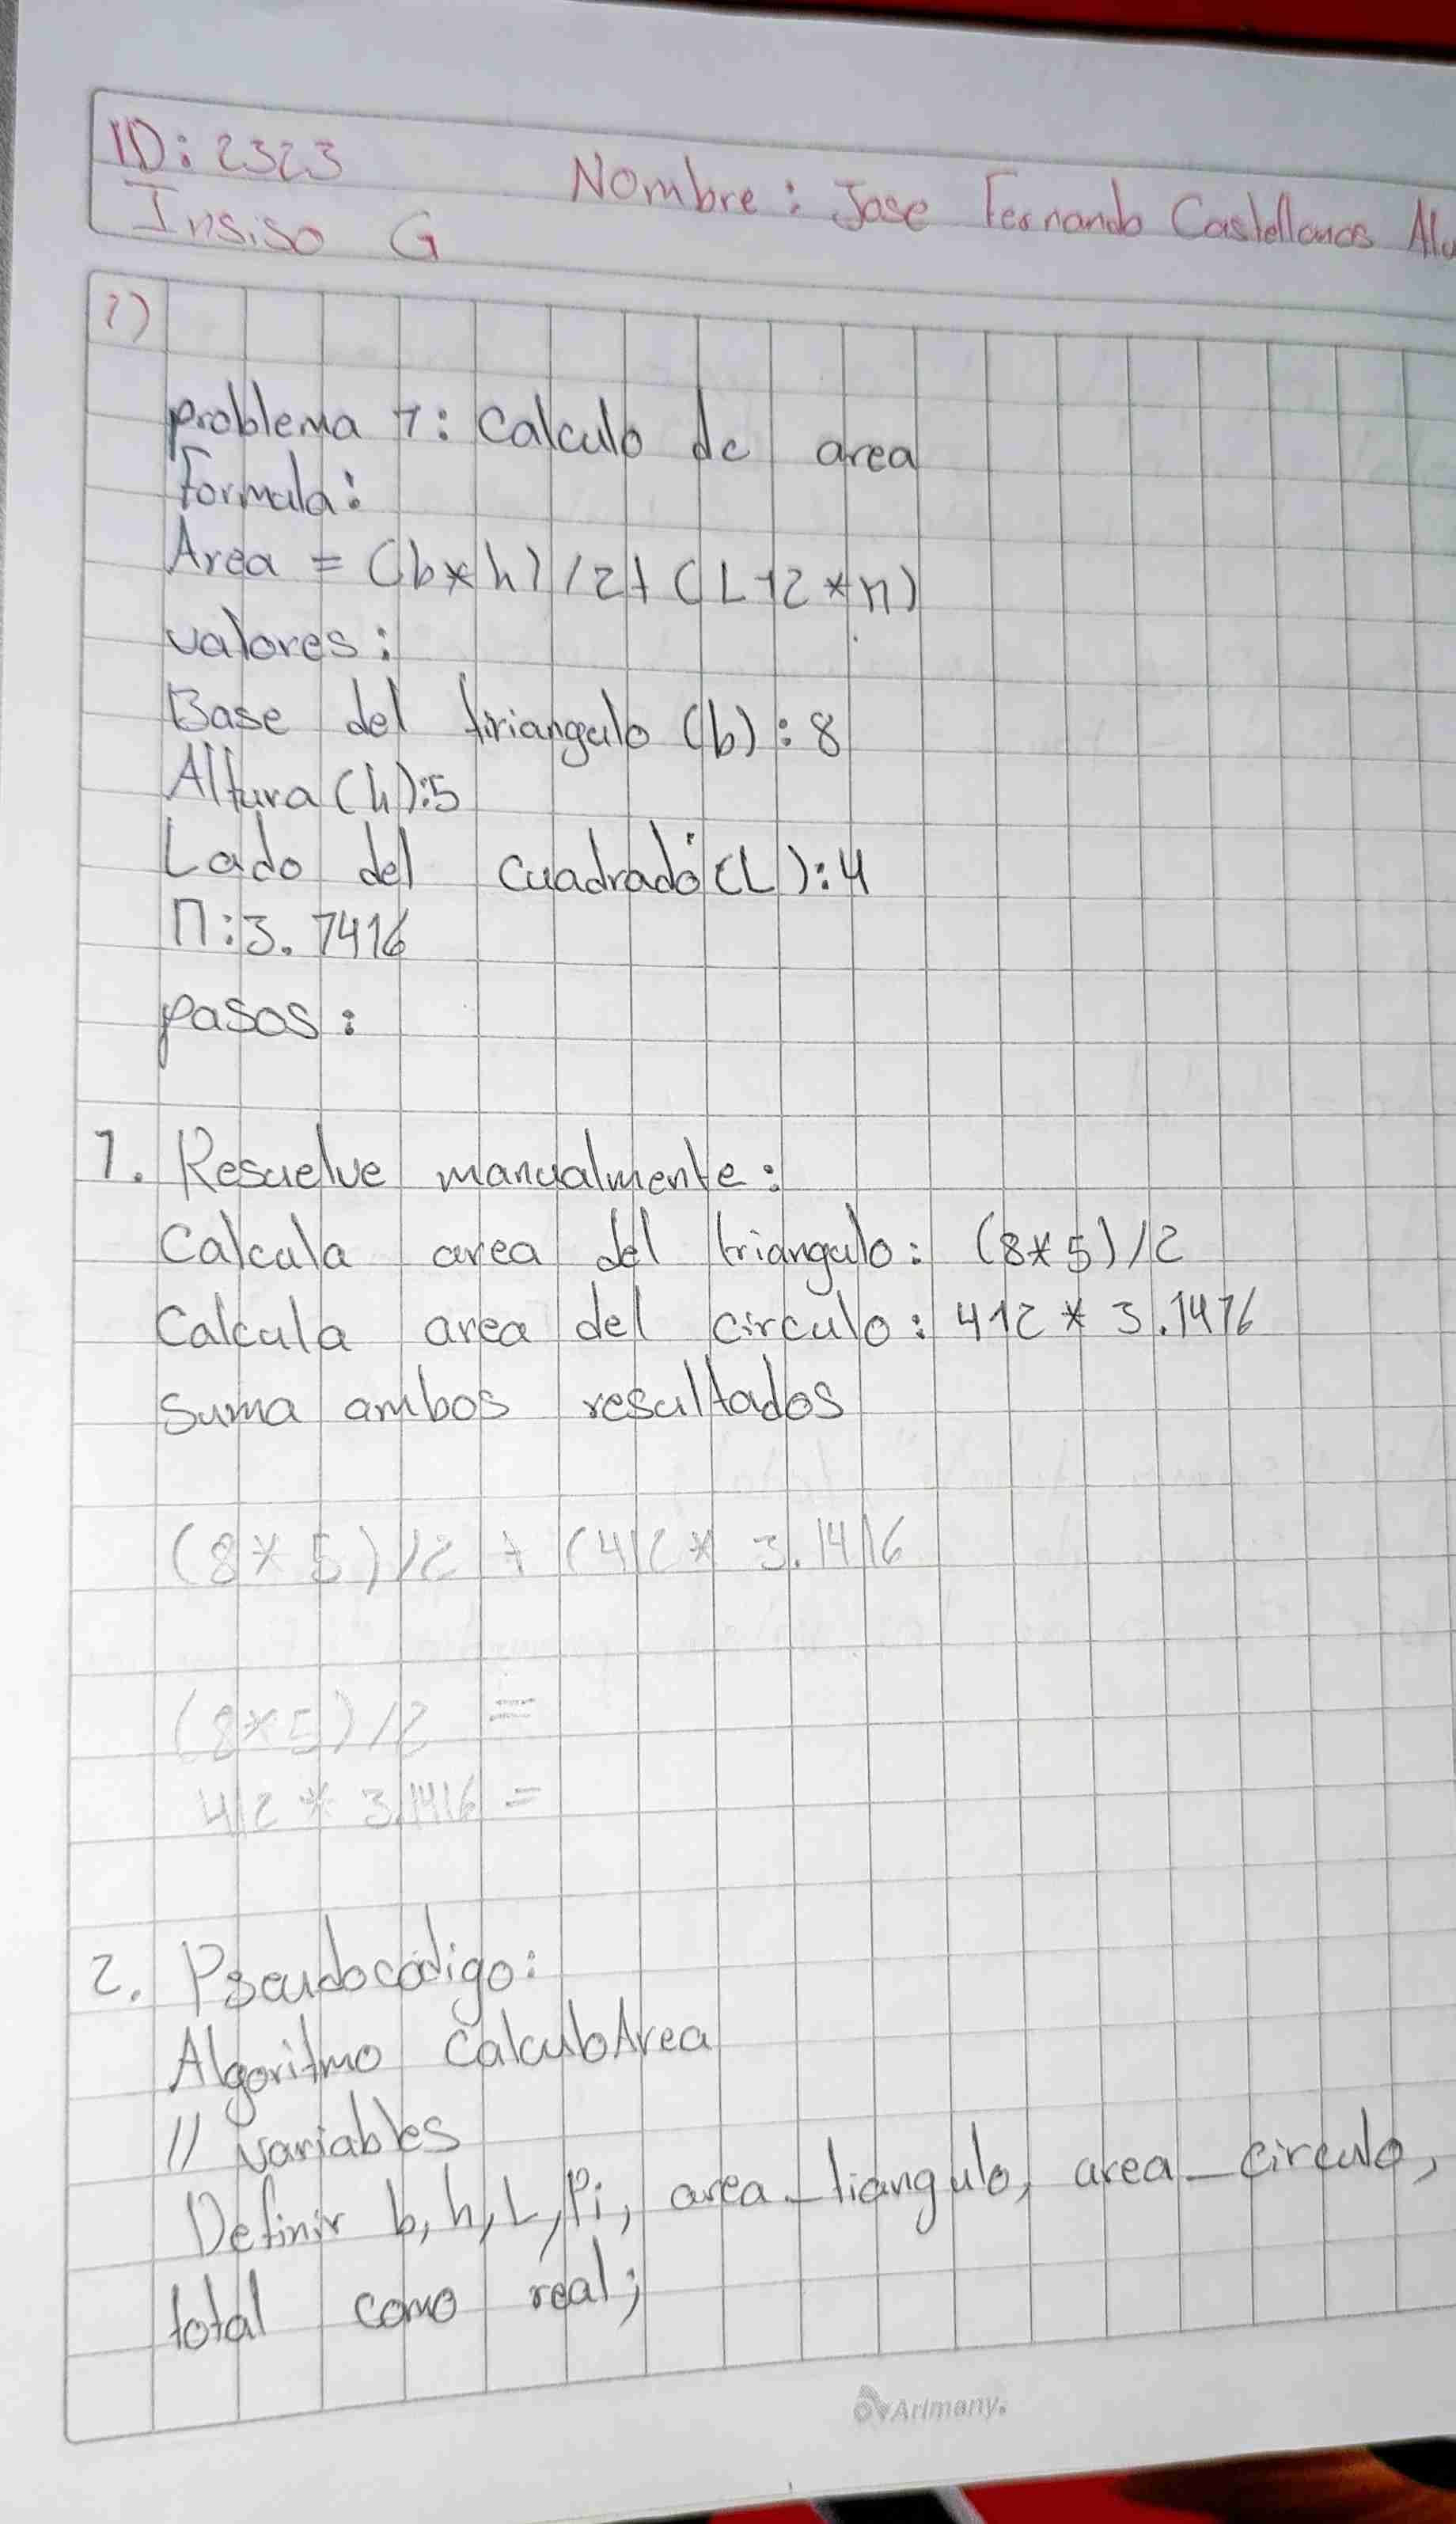 ID: 2323 Nombre: Jose Fernando Castellanos
Insiso G
1)
problema 1: Calculo de area
Formula:
Area = (b*h)/2+(L^2*π)
valores:
Base del tiriangulo (b): 8
Altura (h):5
Lado del cuadrado (L):4
π:3.1416
pasos:
1. Resuelve manualmente:
Calcula area del triangulo: (8*5)/2
Calcula area del circulo: 4^2 * 3.1416
Suma ambos resultados
(8*5)/2 + (4^2* 3.1416
(8*5)/2 =
4^2 * 3.1416 =
2. Pseudocódigo:
Algoritmo CalculoArea
// variables
Definir b, h, L, Pi, area_tiangulo, area_circulo,
total como real;
Arimany.